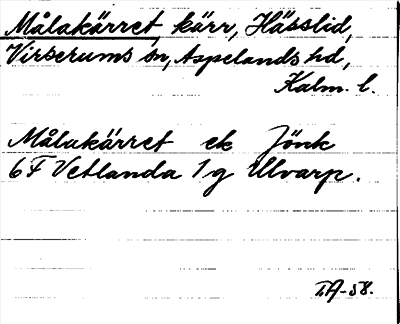 Målakärret kärr, Hässlid,
Virserums sn, Aspelands hd,
Kalm. l.
Målakärret ek Jönk
6F Vetlanda 1g Ulvarp.
TA-58.